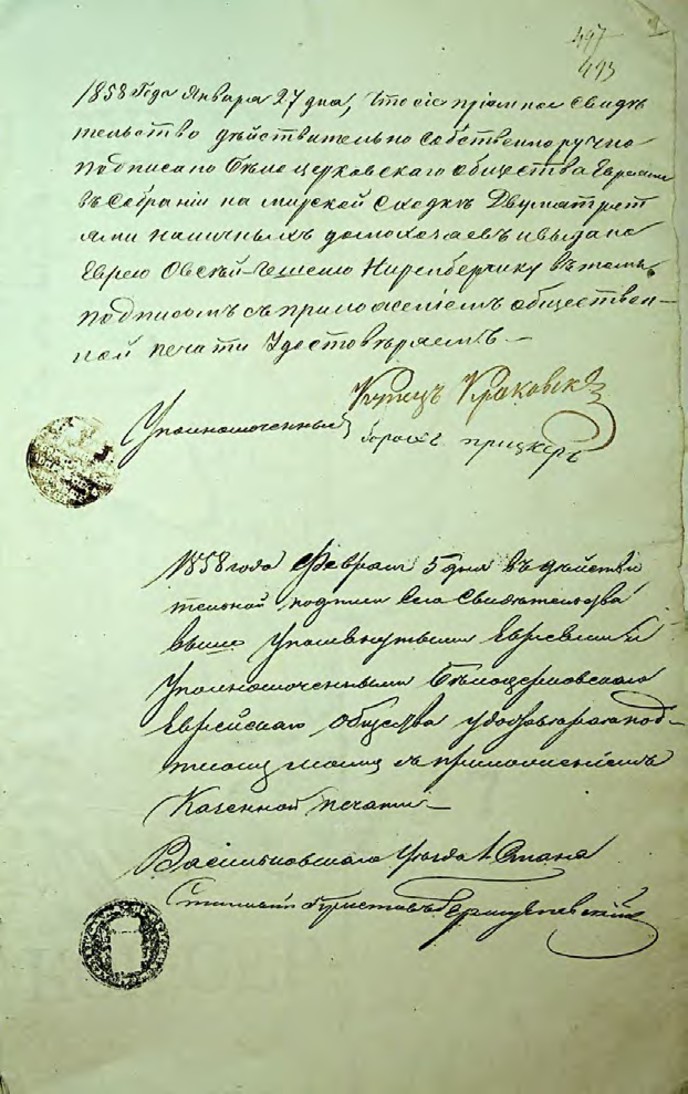 497
493
1858 Года Января 27 дня, что сіе пріемное Свидѣ
тельство дѣйствительно собственноручно
подписано Бѣлоцерковскаго общества Евреями
въ собраніи на мирской Сходкѣ Двуматрет
ями наличныхъ домохозяевъ и выдано
Еврею Ниренберчику въ томъ
подписомъ съ приложеніемъ обществен-
ной печати Удостовѣряемъ.
Купецъ
Уполномоченный прицкеръ
1858 года Февраля 5 дня въ дѣйстви
тельной подписи сего Свидѣтельства
выше упомянутыми Евреями и
Уполномоченными Бѣлоцерковскаго
Еврейскаго общества удостовѣряю под-
писомъ моимъ съ приложеніемъ
Казенной печати
Васильковскаго уѣзда 1. Стана
Приставъ